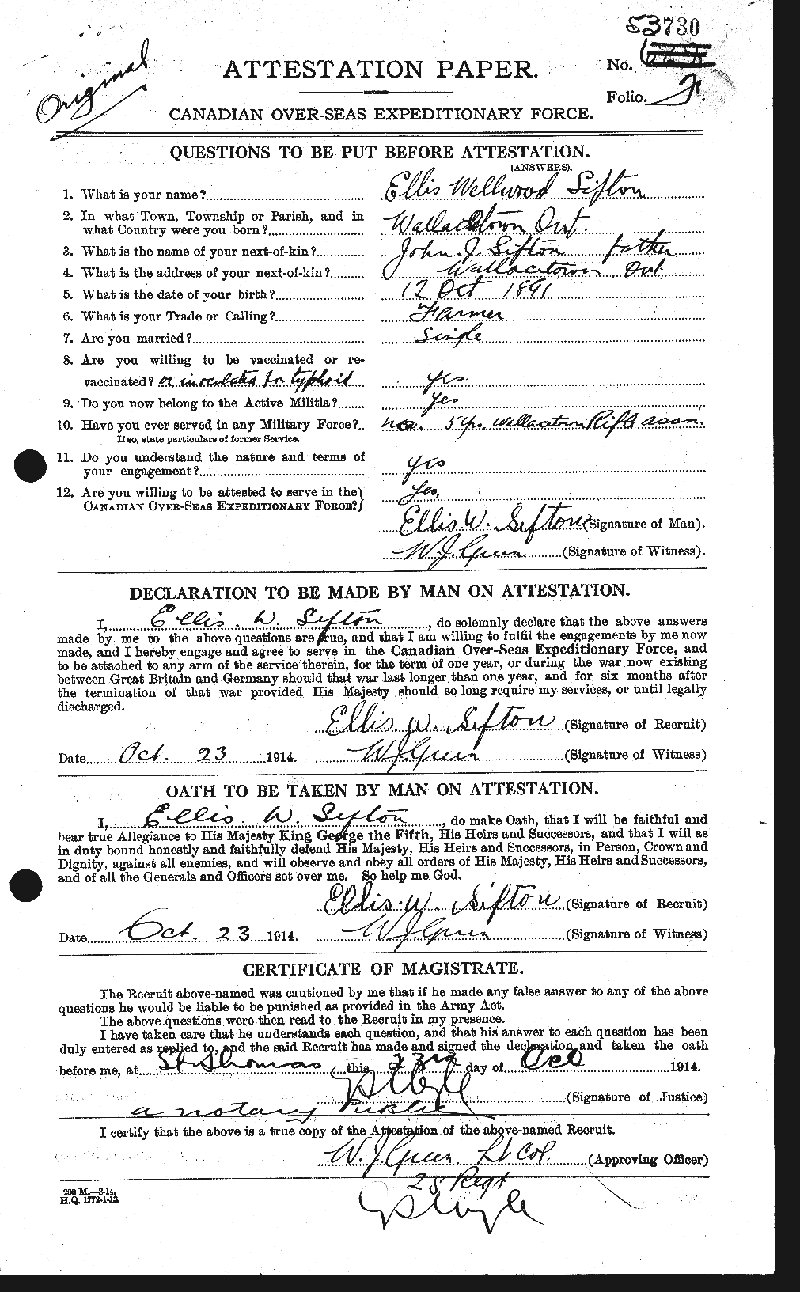 Original
53730
ATTESTATION PAPER.
No.
Folio.
CANADIAN OVER-SEAS EXPEDITIONARY FORCE.
QUESTIONS TO BE PUT BEFORE ATTESTATION.
(ANSWERS).
1. What is your name? Ellis Wellwood Sifton
2. In what Town, Township or Parish, and in
what Country were you born? Wallacetown Ont
3. What is the name of your next-of-kin? John. J. Sifton father
4. What is the address of your next-of-kin? Wallacetown Ont
5. What is the date of your birth? 12 Oct 1891
6. What is your Trade or Calling? Farmer
7. Are you married? Single
8. Are you willing to be vaccinated or re-
vaccinated? or inoculated for typhoid yes.
9. Do you now belong to the Active Militia? Yes
10. Have you ever served in any Military Force? 5 yr. Wallacetown Rifle assn.
If so, state particulars of former Service.
11. Do you understand the nature and terms of
your engagement? yes
12. Are you willing to be attested to serve in the Yes.
CANADIAN OVER-SEAS EXPEDITIONARY FORCE?
Ellis W. Sifton (Signature of Man).
W J Green (Signature of Witness).
DECLARATION TO BE MADE BY MAN ON ATTESTATION.
I, Ellis. W. Sifton, do solemnly declare that the above answers
made by me to the above questions are true, and that I am willing to fulfil the engagements by me now
made, and I hereby engage and agree to serve in the Canadian Over-Seas Expeditionary Force, and
to be attached to any arm of the service therein, for the term of one year, or during the war now existing
between Great Britain and Germany should that war last longer than one year, and for six months after
the termination of that war provided His Majesty should so long require my services, or until legally
discharged.
Ellis W. Sifton (Signature of Recruit)
Date Oct. 23 1914. W J Green (Signature of Witness)
OATH TO BE TAKEN BY MAN ON ATTESTATION.
I, Ellis. W. Sifton, do make Oath, that I will be faithful and
bear true Allegiance to His Majesty King George the Fifth, His Heirs and Successors, and that I will as
in duty bound honestly and faithfully defend His Majesty, His Heirs and Successors, in Person, Crown and
Dignity, against all enemies, and will observe and obey all orders of His Majesty, His Heirs and Successors,
and of all the Generals and Officers set over me. So help me God.
Ellis. W. Sifton (Signature of Recruit)
Date Oct. 23 1914. W J Green (Signature of Witness)
CERTIFICATE OF MAGISTRATE.
The Recruit above-named was cautioned by me that if he made any false answer to any of the above
questions he would be liable to be punished as provided in the Army Act.
The above questions were then read to the Recruit in my presence.
I have taken care that he understands each question, and that his answer to each question has been
duly entered as replied to, and the said Recruit has made and signed the declaration and taken the oath
before me, at St Thomas this 23rd day of Oct 1914.
(Signature of Justice)
a notary Public
I certify that the above is a true copy of the Attestation of the above-named Recruit.
W. J Green. Lt Col. (Approving Officer)
25 Regt
200 M.—8-14.
H.Q. 1772-1-13